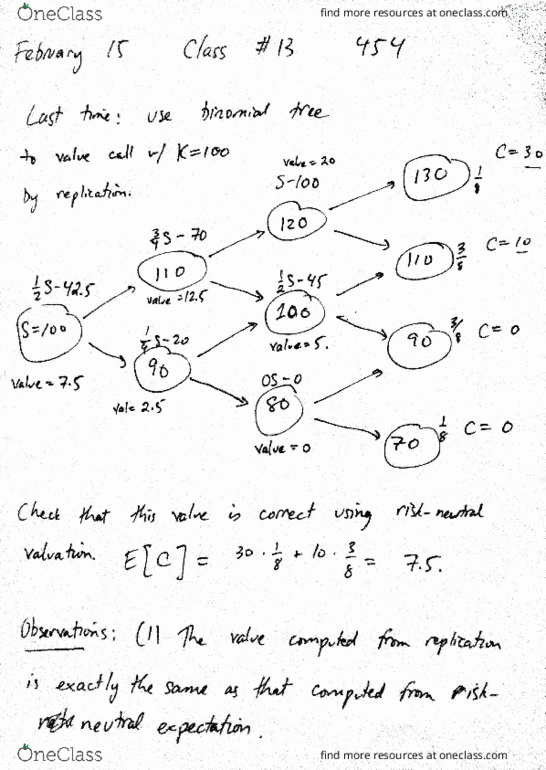 OneClass
find more resources at oneclass.com
February 15 Class #13 454
Last time: use binomial tree
to value call w/ K=100
by replication.
value = 20
S-100
120
130
1/8
C=30
3/4 S - 70
110
value = 12.5
1/2 S - 45
100
value = 5.
110
3/8
C=10
1/2 S-42.5
S=100
value = 7.5
1/4 S-20
90
val = 2.5
90
3/8
C = 0
0S-0
80
value = 0
70
1/8
C = 0
Check that this value is correct using risk-neutral
valuation. E[C] = 30 · 1/8 + 10 · 3/8 = 7.5.
Observations: (1) The value computed from replication
is exactly the same as that computed from risk-
neutral expectation.
OneClass
find more resources at oneclass.com